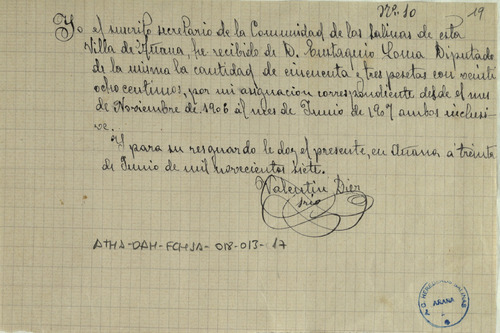 Nº 10
19
Yo el suscrito secretario de la Comunidad de las Salinas de esta
Villa de Añana, he recibido de D. Eustaquio Loma Diputado
de la misma la cantidad de cincuenta y tres pesetas con veinti
ocho centimos, por mi asignacion correspondiente desde el mes
de Noviembre de 1906 al mes de Junio de 1907 ambos inclusi-
ve.
Y para su resguardo le doy el presente, en Añana a treinta
de Junio de mil novecientos siete.
Valentin Diez
Srio
ATHA-DAH-FCHSA-018-013-17
AÑANA